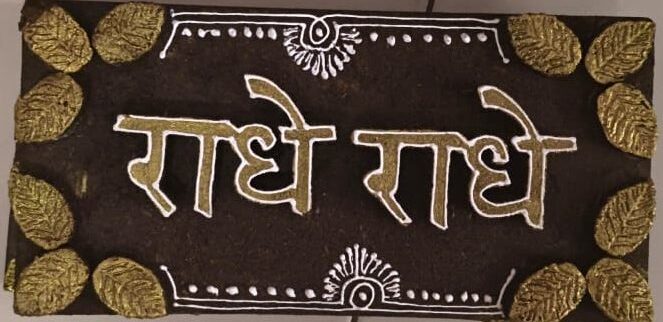 राधे राधे